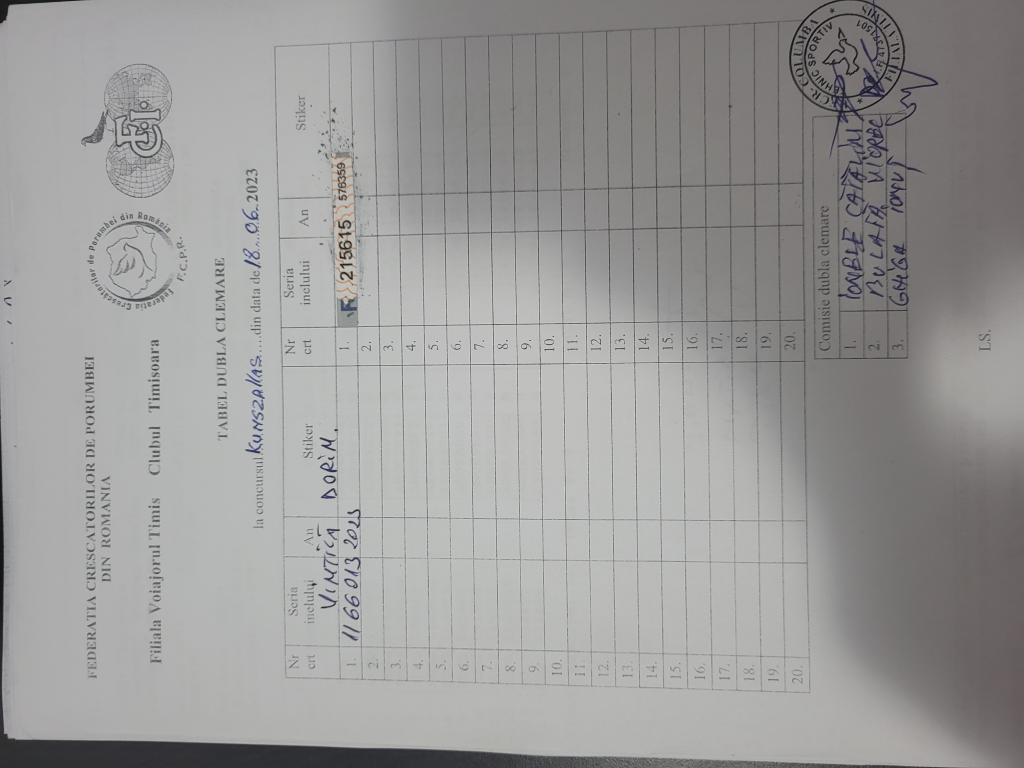 FEDERATIA CRESCATORILOR DE PORUMBEI
DIN ROMANIA
Filiala Voiajorul Timis Clubul Timisoara
Federatia Crescatorilor de Porumbei din România
F.C.P.R.
FCI
TABEL DUBLA CLEMARE
la concursul KUNSZALLAS.....din data de 18...06..2023
Nr crt Seria inelului An Stiker Nr crt Seria inelului An Stiker
VINTILĂ DORIN.
1. 1166013 2023 1. F 215615 576359
2. 2.
3. 3.
4. 4.
5. 5.
6. 6.
7. 7.
8. 8.
9. 9.
10. 10.
11. 11.
12. 12.
13. 13.
14. 14.
15. 15.
16. 16.
17. 17.
18. 18.
19. 19.
20. 20.
Comisie dubla clemare
1.
2.
3.
COLUMBA
TEHNIC SPORTIV
LS.